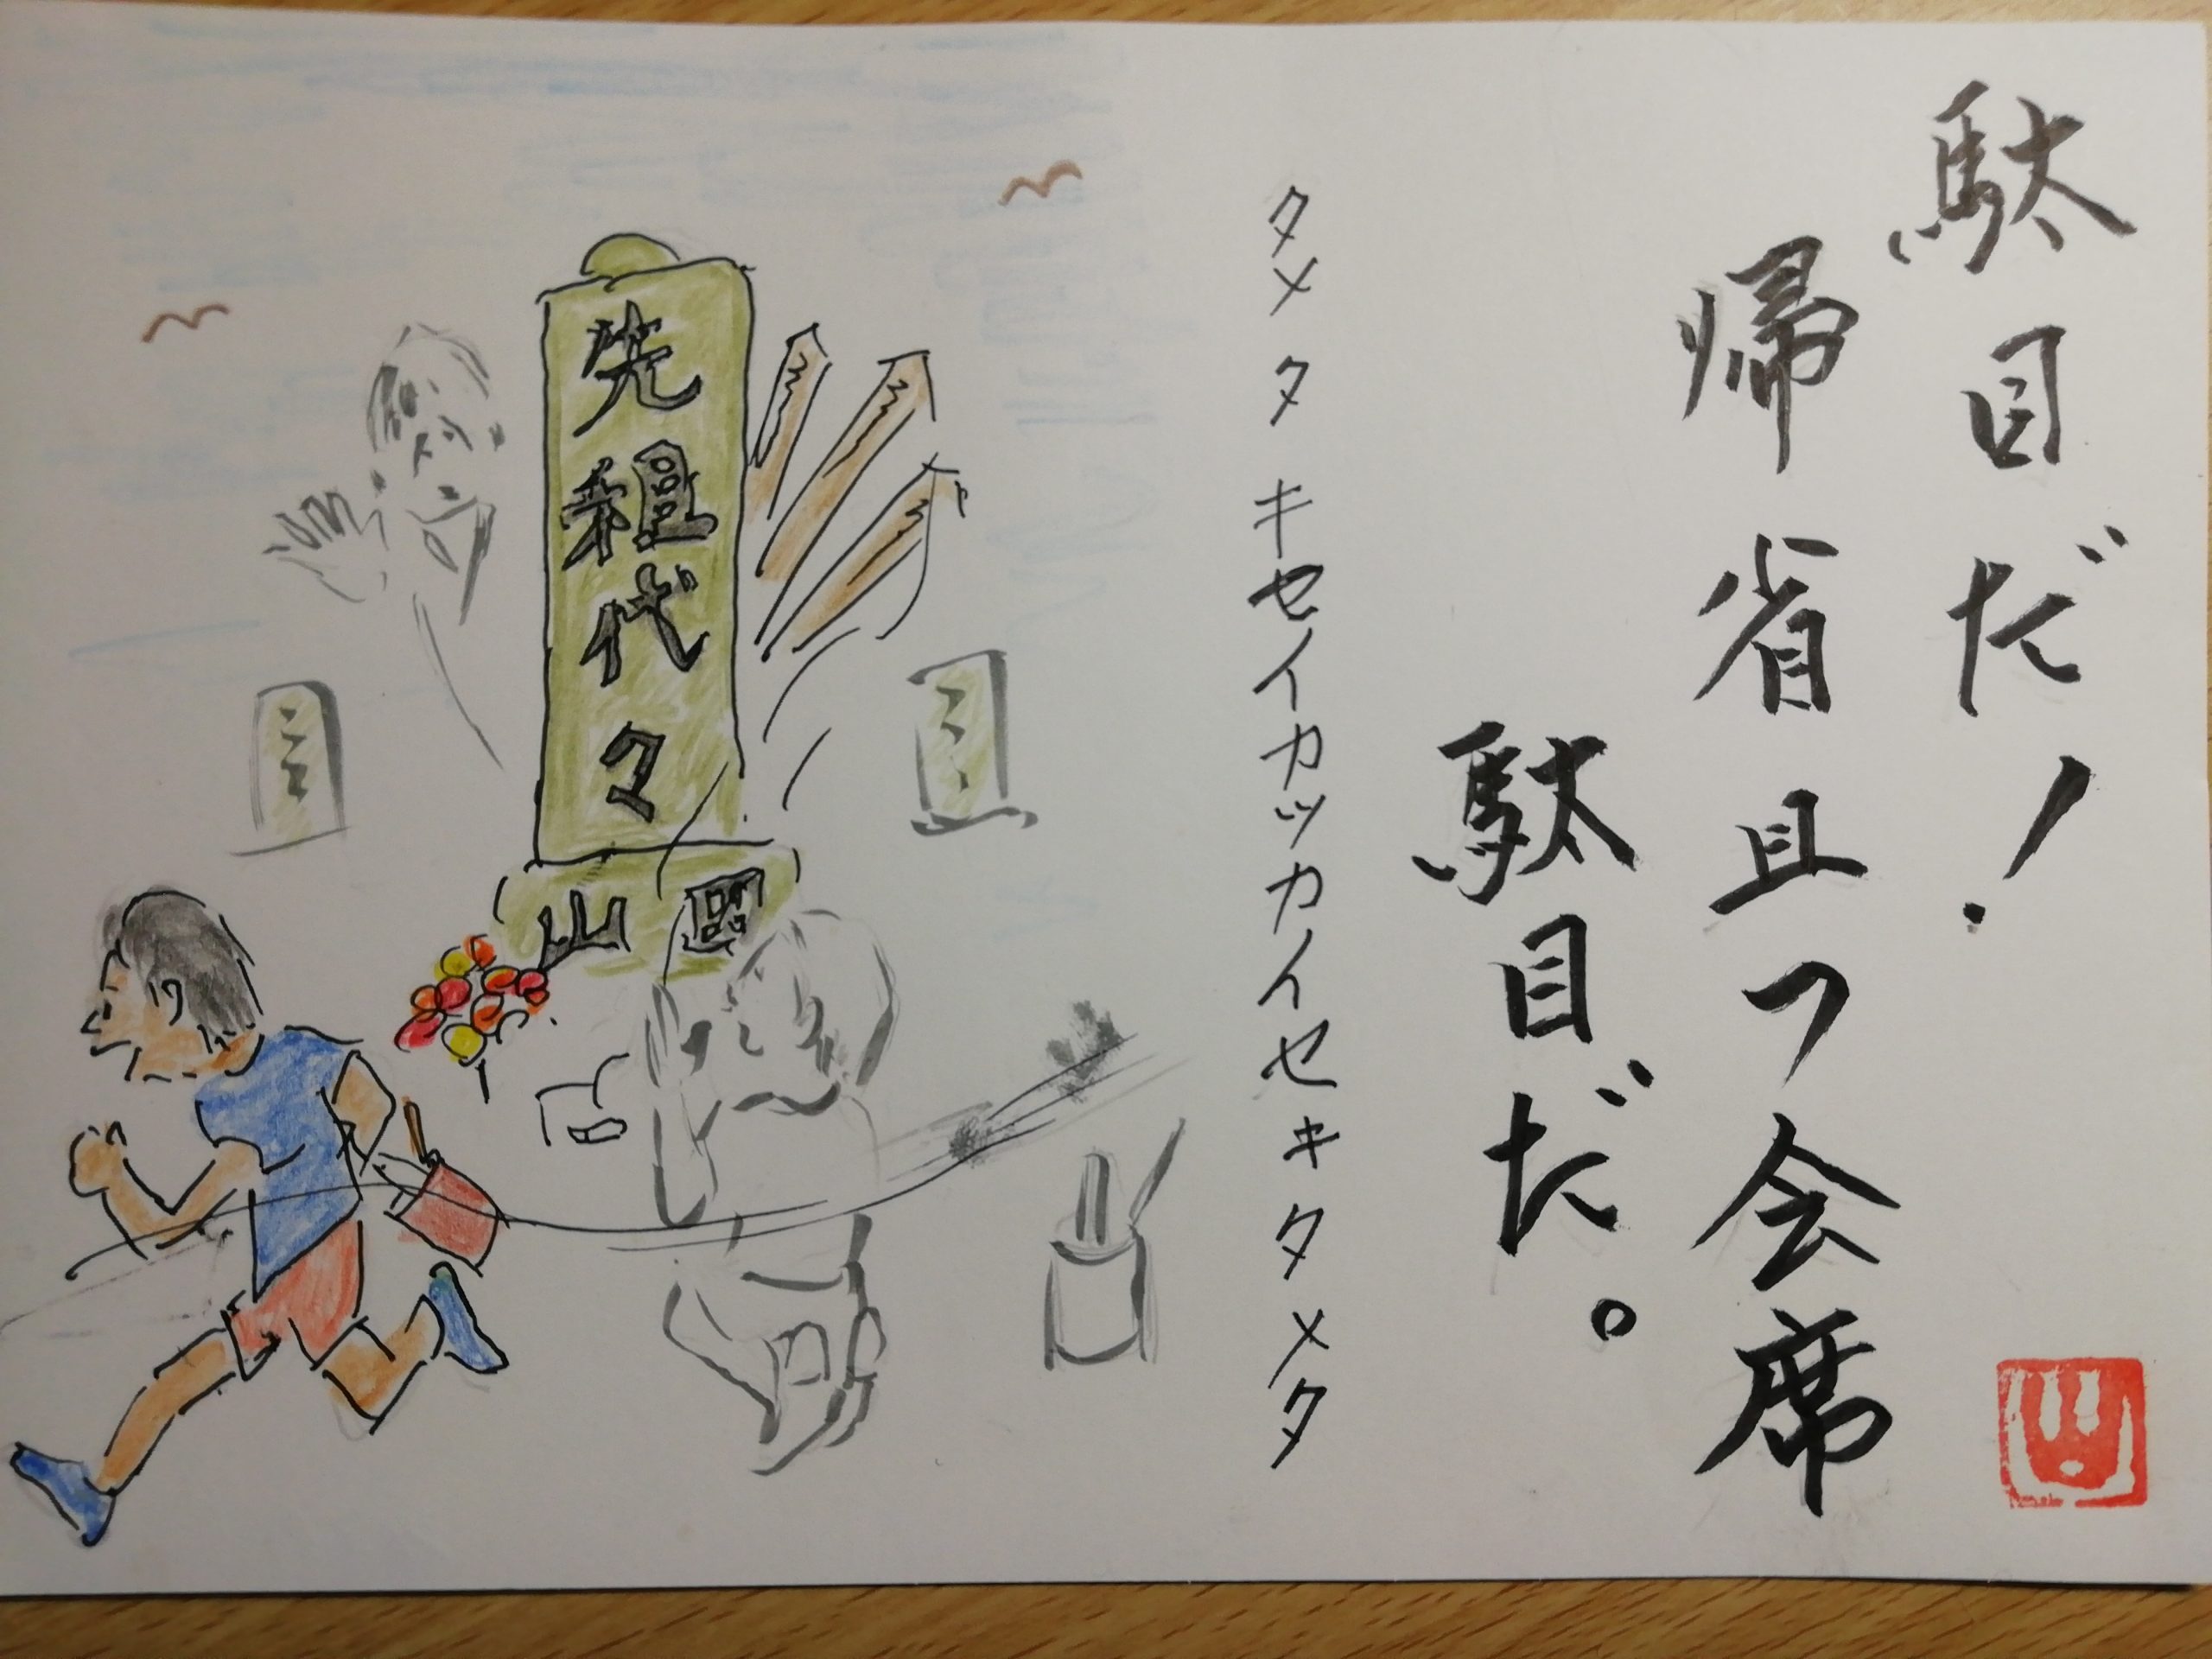 駄目だ!
帰省且つ会席
駄目だ。
タメタキセイカツカイセキタメタ
先祖代々
山